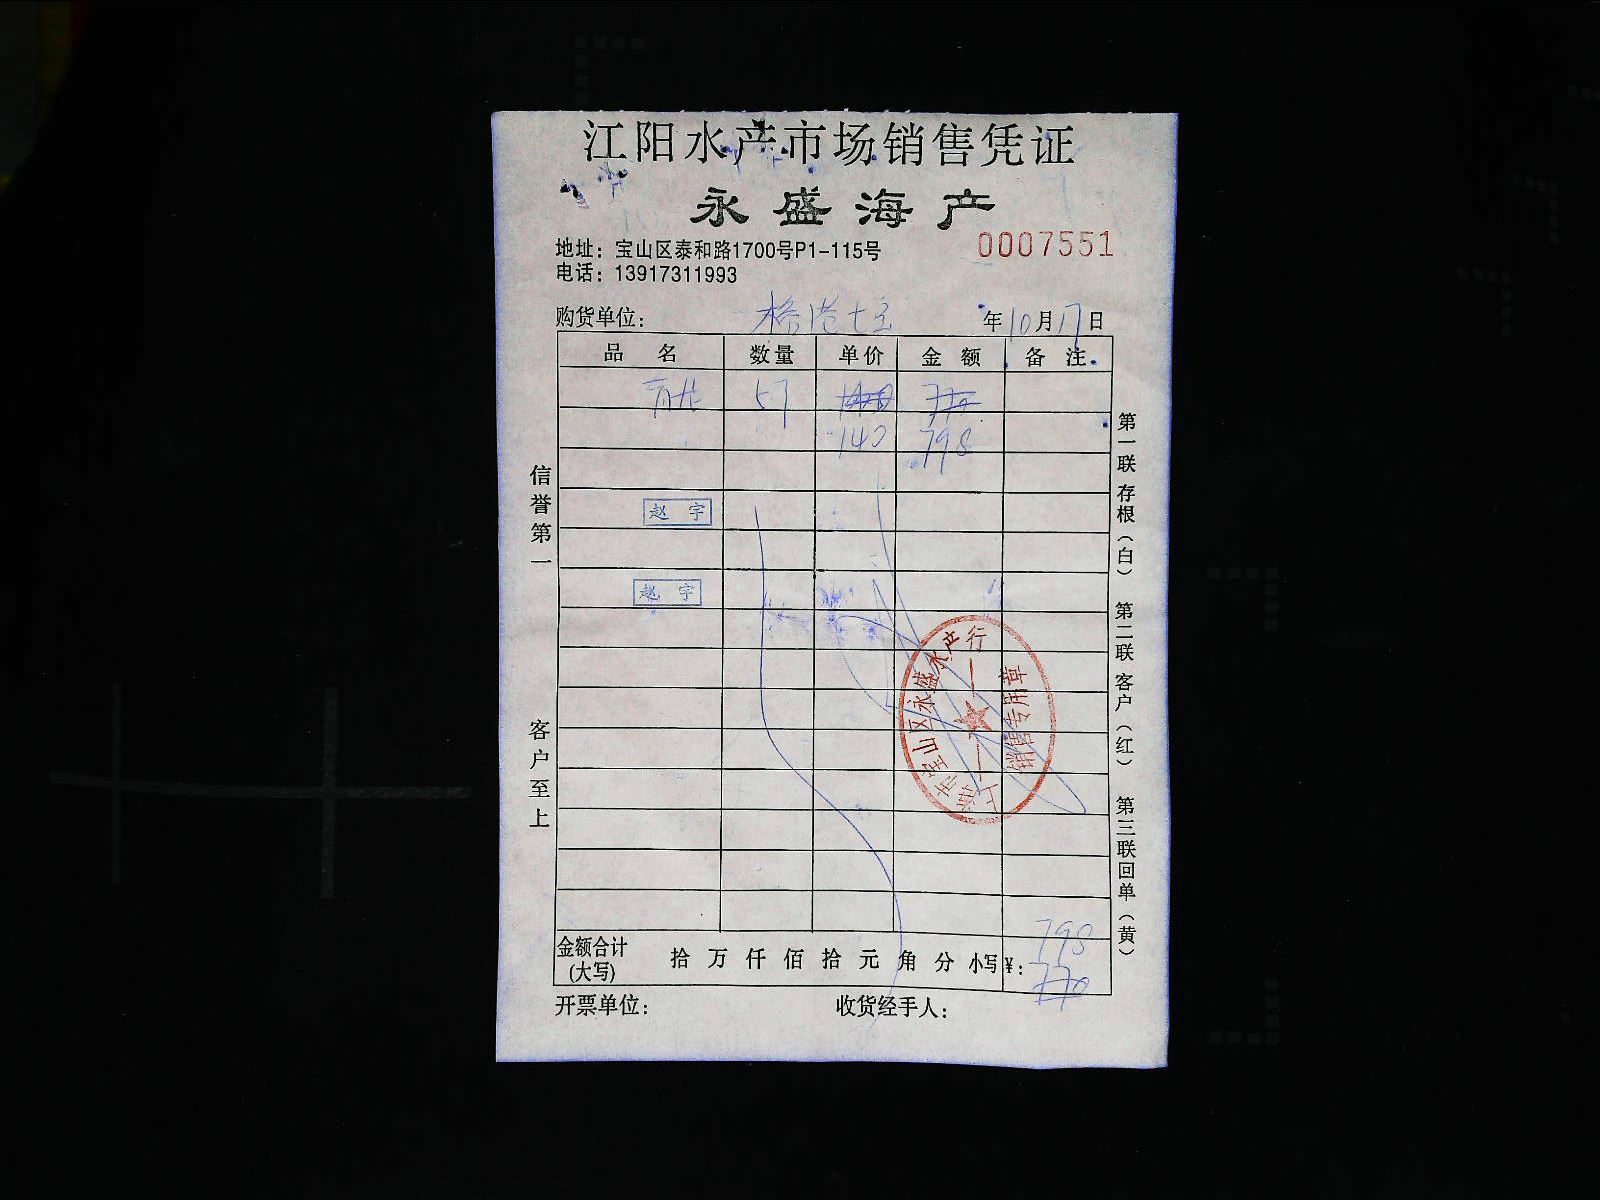 江阳水产市场销售凭证
永盛海产
地址：宝山区泰和路1700号P1-115号
0007551
电话：13917311993
购货单位： 年10月17日
品名 数量 单价 金额 备注
57
140 798
赵宇
赵宇
信誉第一
客户至上
第一联存根（白） 第二联客户（红） 第三联回单（黄）
上海市宝山区永盛水产行
销售专用章
798
金额合计(大写) 拾 万 仟 佰 拾 元 角 分 小写¥： 770
开票单位： 收货经手人：